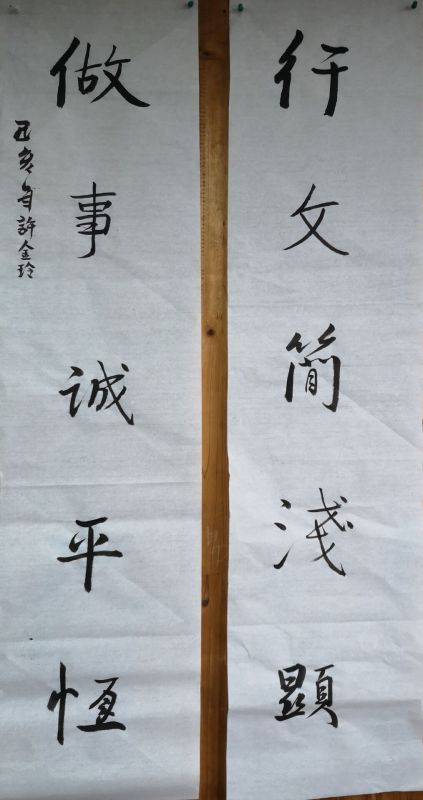 行文简淺顕
做事诚平恆
己亥年許金玲